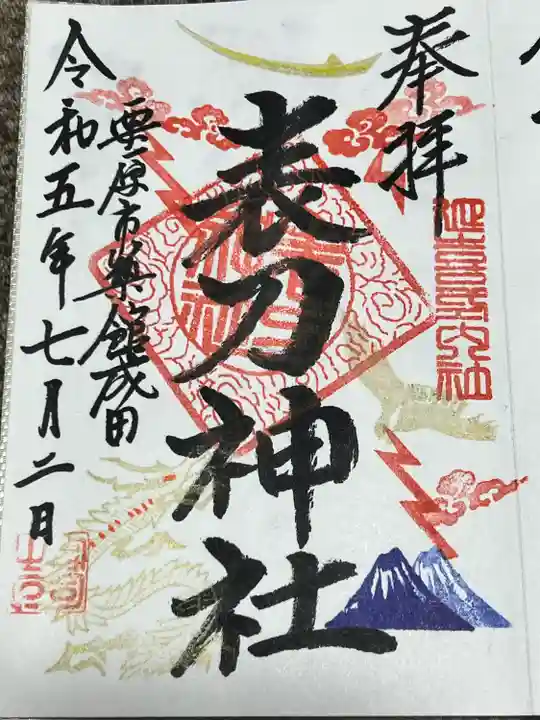 奉拝
表刀神社
栗原市築館成田
令和五年七月二日